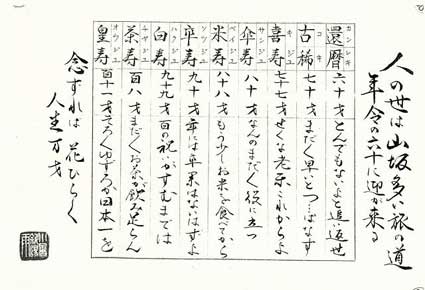 人の世は山坂多い旅の道
年令の六十に迎が来る
還暦 カンレキ 六十才 とんでもないよと追い返せ
古稀 コキ 七十才 まだまだ早いとつっぱなす
喜寿 キジュ 七十七才 せくな老楽これからよ
傘寿 サンジュ 八十才 なんのまだまだ役に立つ
米寿 ベイジュ 八十八才 もう少しお米を食べてから
卒寿 ソツジュ 九十才 年には卒業はないはずよ
白寿 ハクジュ 九十九才 百の祝いがすむまでは
茶寿 チャジュ 百八才 まだまだお茶が飲み足らん
皇寿 オウジュ 百十一才 そろそろゆずろか日本一を
念ずれば 花ひらく
人生万才